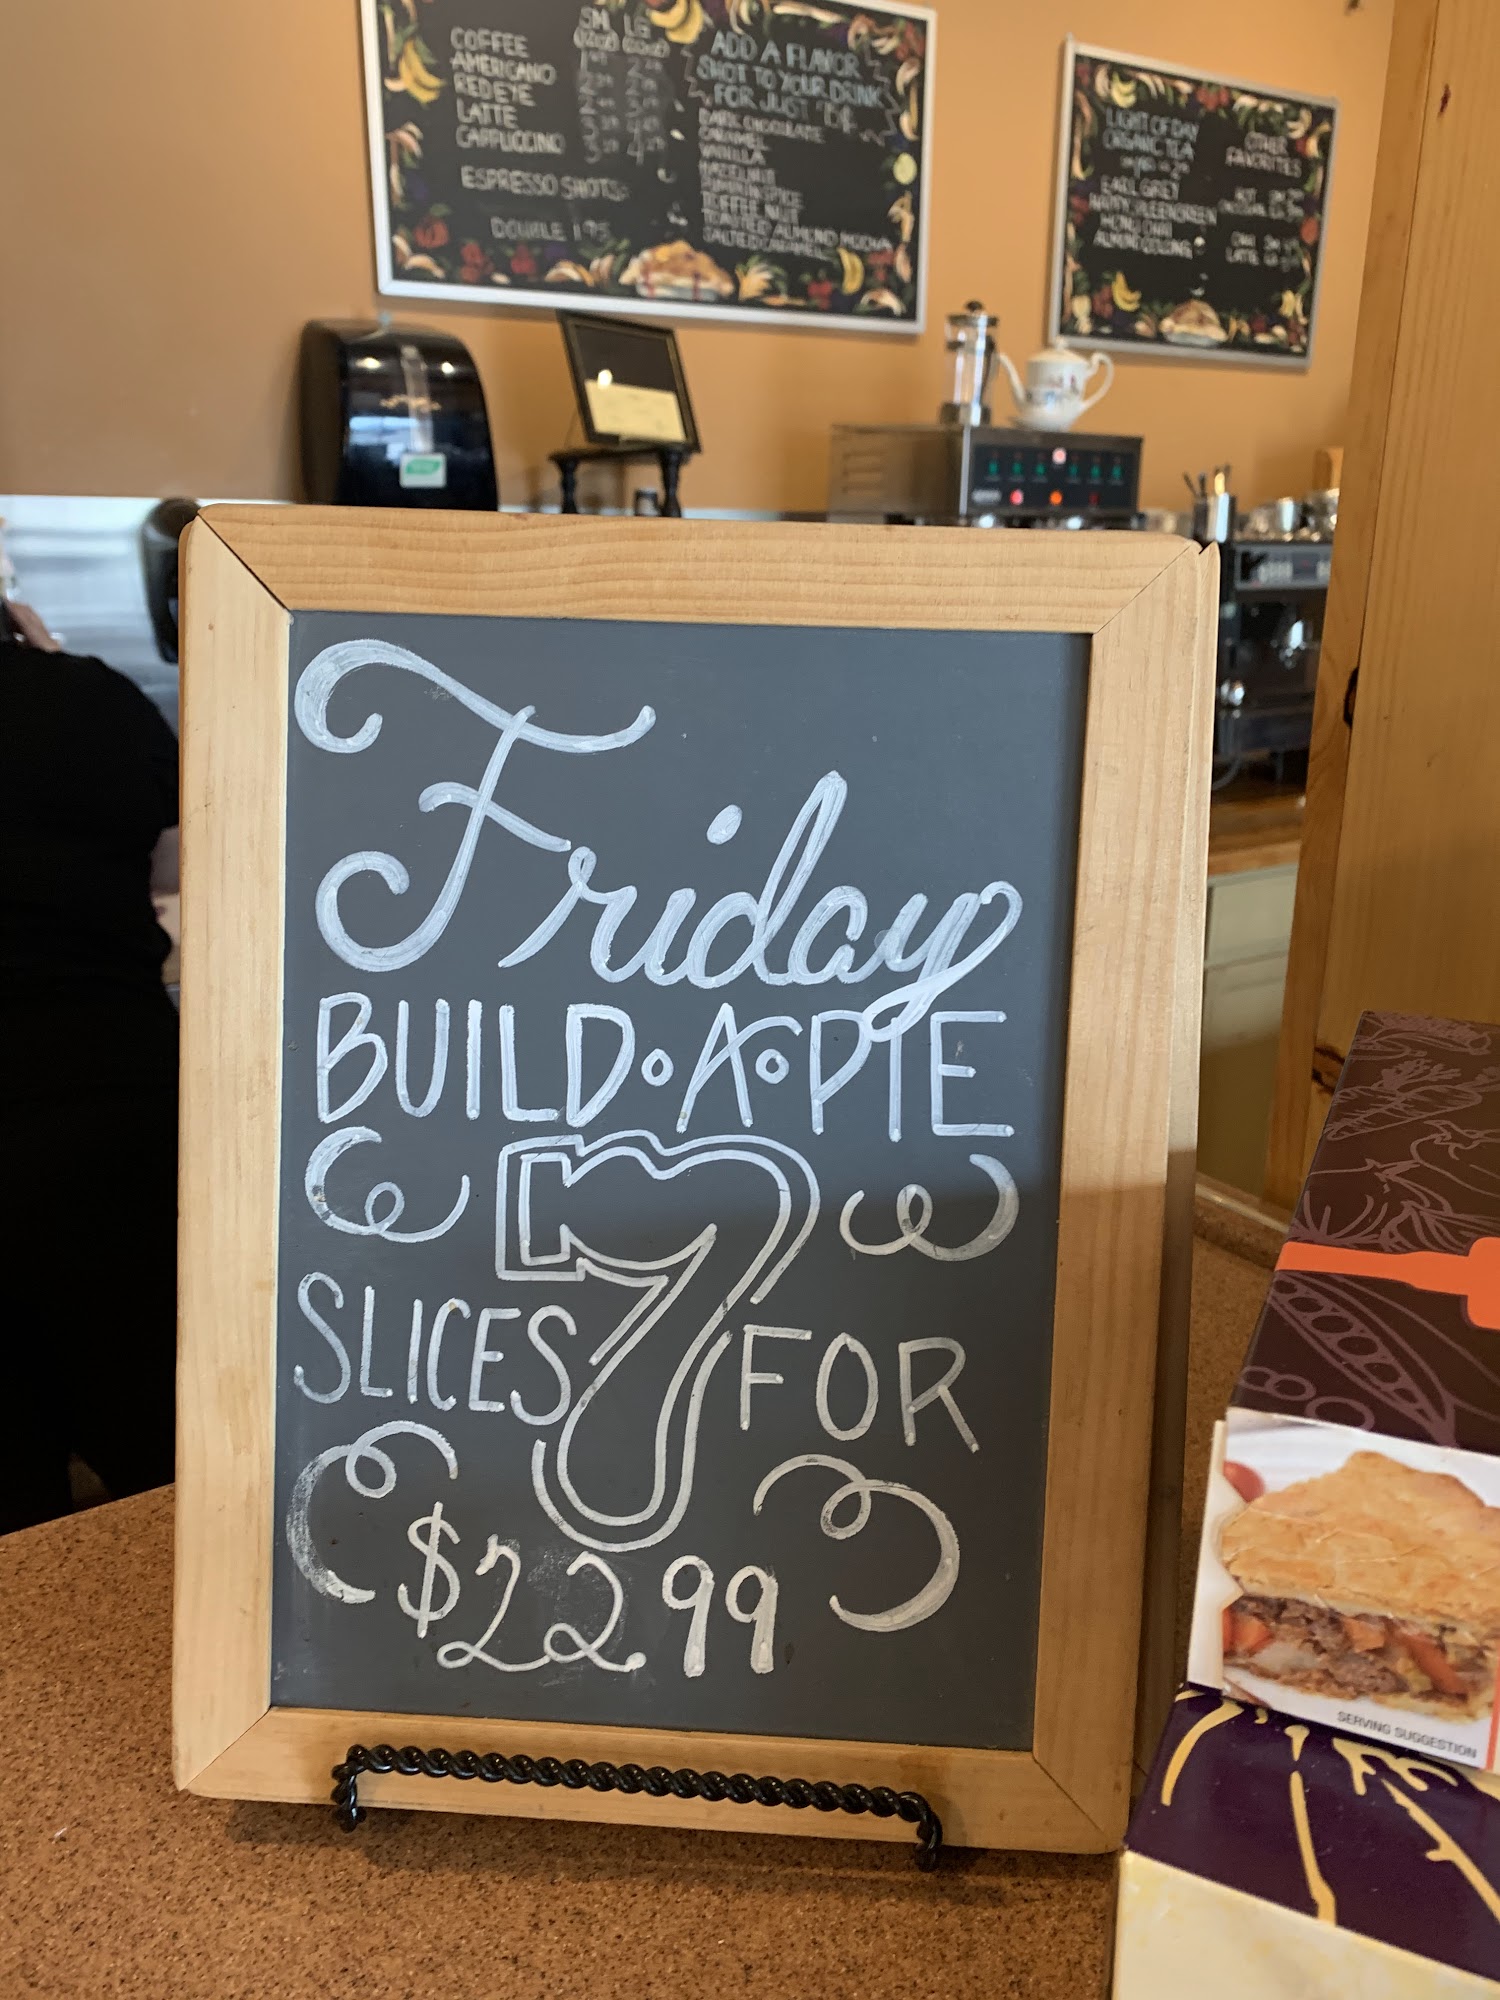 COFFEE
AMERICANO
RED EYE
LATTE
CAPPUCCINO
SM LG
ESPRESSO SHOTS:
DOUBLE 1.95
ADD A FLAVOR
SHOT TO YOUR DRINK
FOR JUST
DARK CHOCOLATE
CARAMEL
VANILLA
HAZELNUT
PUMPKIN SPICE
TOFFEE NUT
TOASTED ALMOND MOCHA
SALTED CARAMEL
LIGHT OF DAY
ORGANIC TEA
EARL GREY
ALMOND OOLONG
OTHER
FAVORITES
HOT
CHAI
LATTE
Friday
BUILD•A•PIE
7
SLICES FOR
$22 99
SERVING SUGGESTION